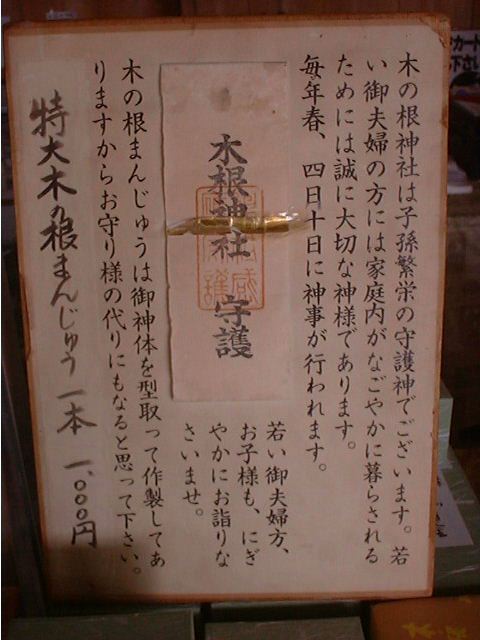 木の根神社は子孫繁栄の守護神でございます。若
い御夫婦の方には家庭内がなごやかに暮らされる
ためには誠に大切な神様であります。
毎年春、四日十日に神事が行われます。
若い御夫婦方、
お子様も、にぎ
やかにお詣りな
さいませ。
木根神社 守護
木の根まんじゅうは御神体を型取って作製してあ
りますからお守り様の代りにもなると思って下さい。
特大木の根まんじゅう 一本 一、〇〇〇円